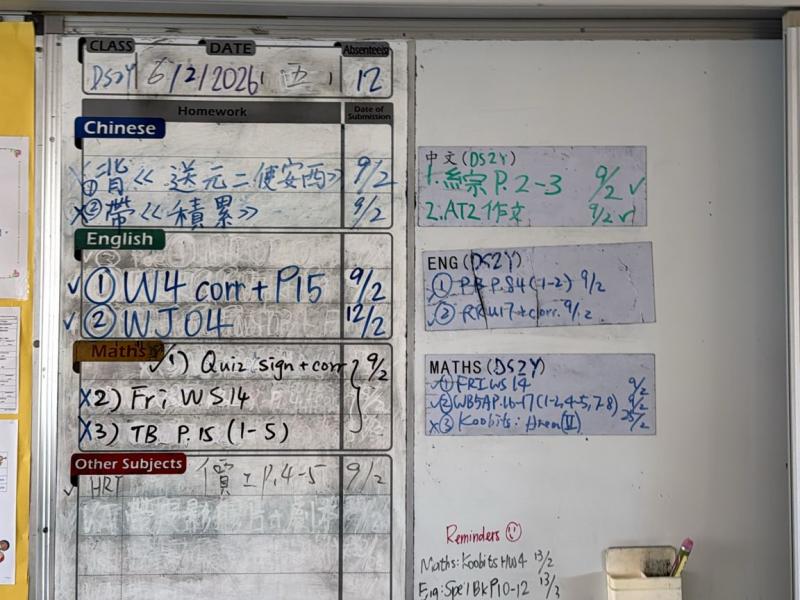 CLASS DATE Absentee(s)
DS2Y 6/2/2026 (五) 12
Homework Date of Submission
Chinese
① 背《送元二使安西》 9/2
② 帶《積累》 9/2
English
① W4 corr + P15 9/2
② WJ04 12/2
Maths
1) Quiz sign + corr 9/2
2) Fri WS14
3) TB P.15 (1-5)
Other Subjects
HRT P.4-5 9/2
中文(DS2Y)
1.綜P.2-3 9/2
2.AT2作文 9/2
ENG(DS2Y)
① P.84(1-2) 9/2
② + corr. 9/2
MATHS(DS2Y)
① FRI WS 14 9/2
② WB5A P.16-17(1-2,4-5,7-8) 9/2
③ Koobits: Area(II) 25/2
Reminders
Maths: Koobits HW4 13/2
Eng: Spell BK P10-12 13/3